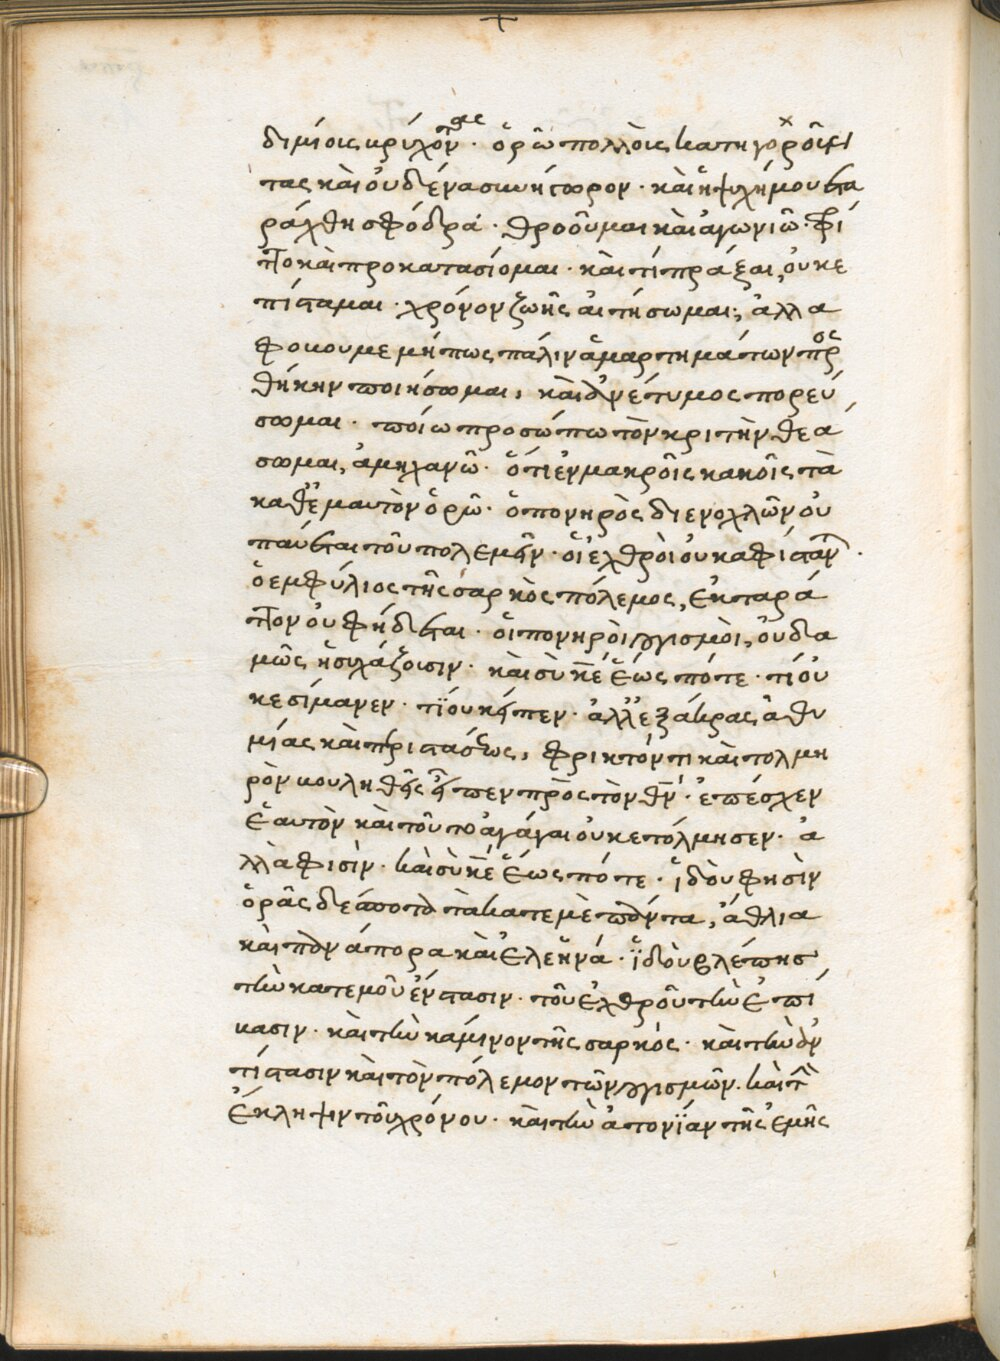 δι μίοις κριχὸν · ὁρῶ πολλοὺς κατηγοροῦν
τας καὶ οὐδένα συνήγορον · καὶ ἡ ψυχή μου ἐτα
ράχθη σφόδρα · θροοῦμαι καὶ ἀγωνιῶ · φρί
ττο καὶ προκατασίομαι · καὶ τί πράξαι, οὐκ ε
πίσταμαι · χρόνον ζωῆς αἰτήσωμαι; ἀλλα
φοκουμε μήπως πάλιν ἁμαρτημάτων προσ
θήκην ποιήσωμαι, καὶ ἀνέτυμος πορεύ
σωμαι · ποίω προσώπω τὸν κριτὴν θεά
σωμαι, ἀμηχανῶ · ὅτι ἐν μακροῖς κακοῖς τὰ
καθ' ἐμαυτὸν ὁρῶ · ὁ πονηρὸς διενοχλῶν οὐ
παύεται τοῦ πολεμεῖν · οἱ ἐχθροὶ οὐκ αφίσταν ·
ὁ εμφύλιος τῆς σαρκὸς πόλεμος, ἐκταρά
ττον οὐ φήδεται · οἱ πονηροὶ λογισμοὶ, οὐδα
μῶς ἡσυχάζοισιν · καὶ σὺ κε ἕως πότε · τί οὐ
κεσίμανεν · τί οὐκ εἶπεν · ἀλλ' εξ ἄκρας ἀθυ
μίας καὶ περιστάσεως, φρικτόν τι καὶ τολμη
ρὸν κουληθεὶς εἶπεν πρὸς τὸν θν · ἐπέσχεν
ἑαυτὸν καὶ τοῦτο ἀγάγαι οὐκ ετόλμησεν · ἀ
λλὰ φισὶν · καὶ σὺ κε ἕως πότε · ἰδοὺ φησὶν
ὁρᾶς δέσποτα τὰ κατεμὲ πάντα, ἄθλια
καὶ πάν άπορα καὶ ἐλεηνά · ἰδοὺ βλέπησ
τὴν κατεμοῦ ένστασιν · τοῦ ἐχθροῦ τὴν ἐπί
κασιν · καὶ τὴν κάμινον τῆς σαρκός · καὶ τὴν ἀν
τίστασιν καὶ τὸν πόλεμον τῶν λογισμῶν · καὶ τὴ
ἐκληψιν τοῦ χρόνου · καὶ τὴν ἀτονίαν τῆς ἐμῆς